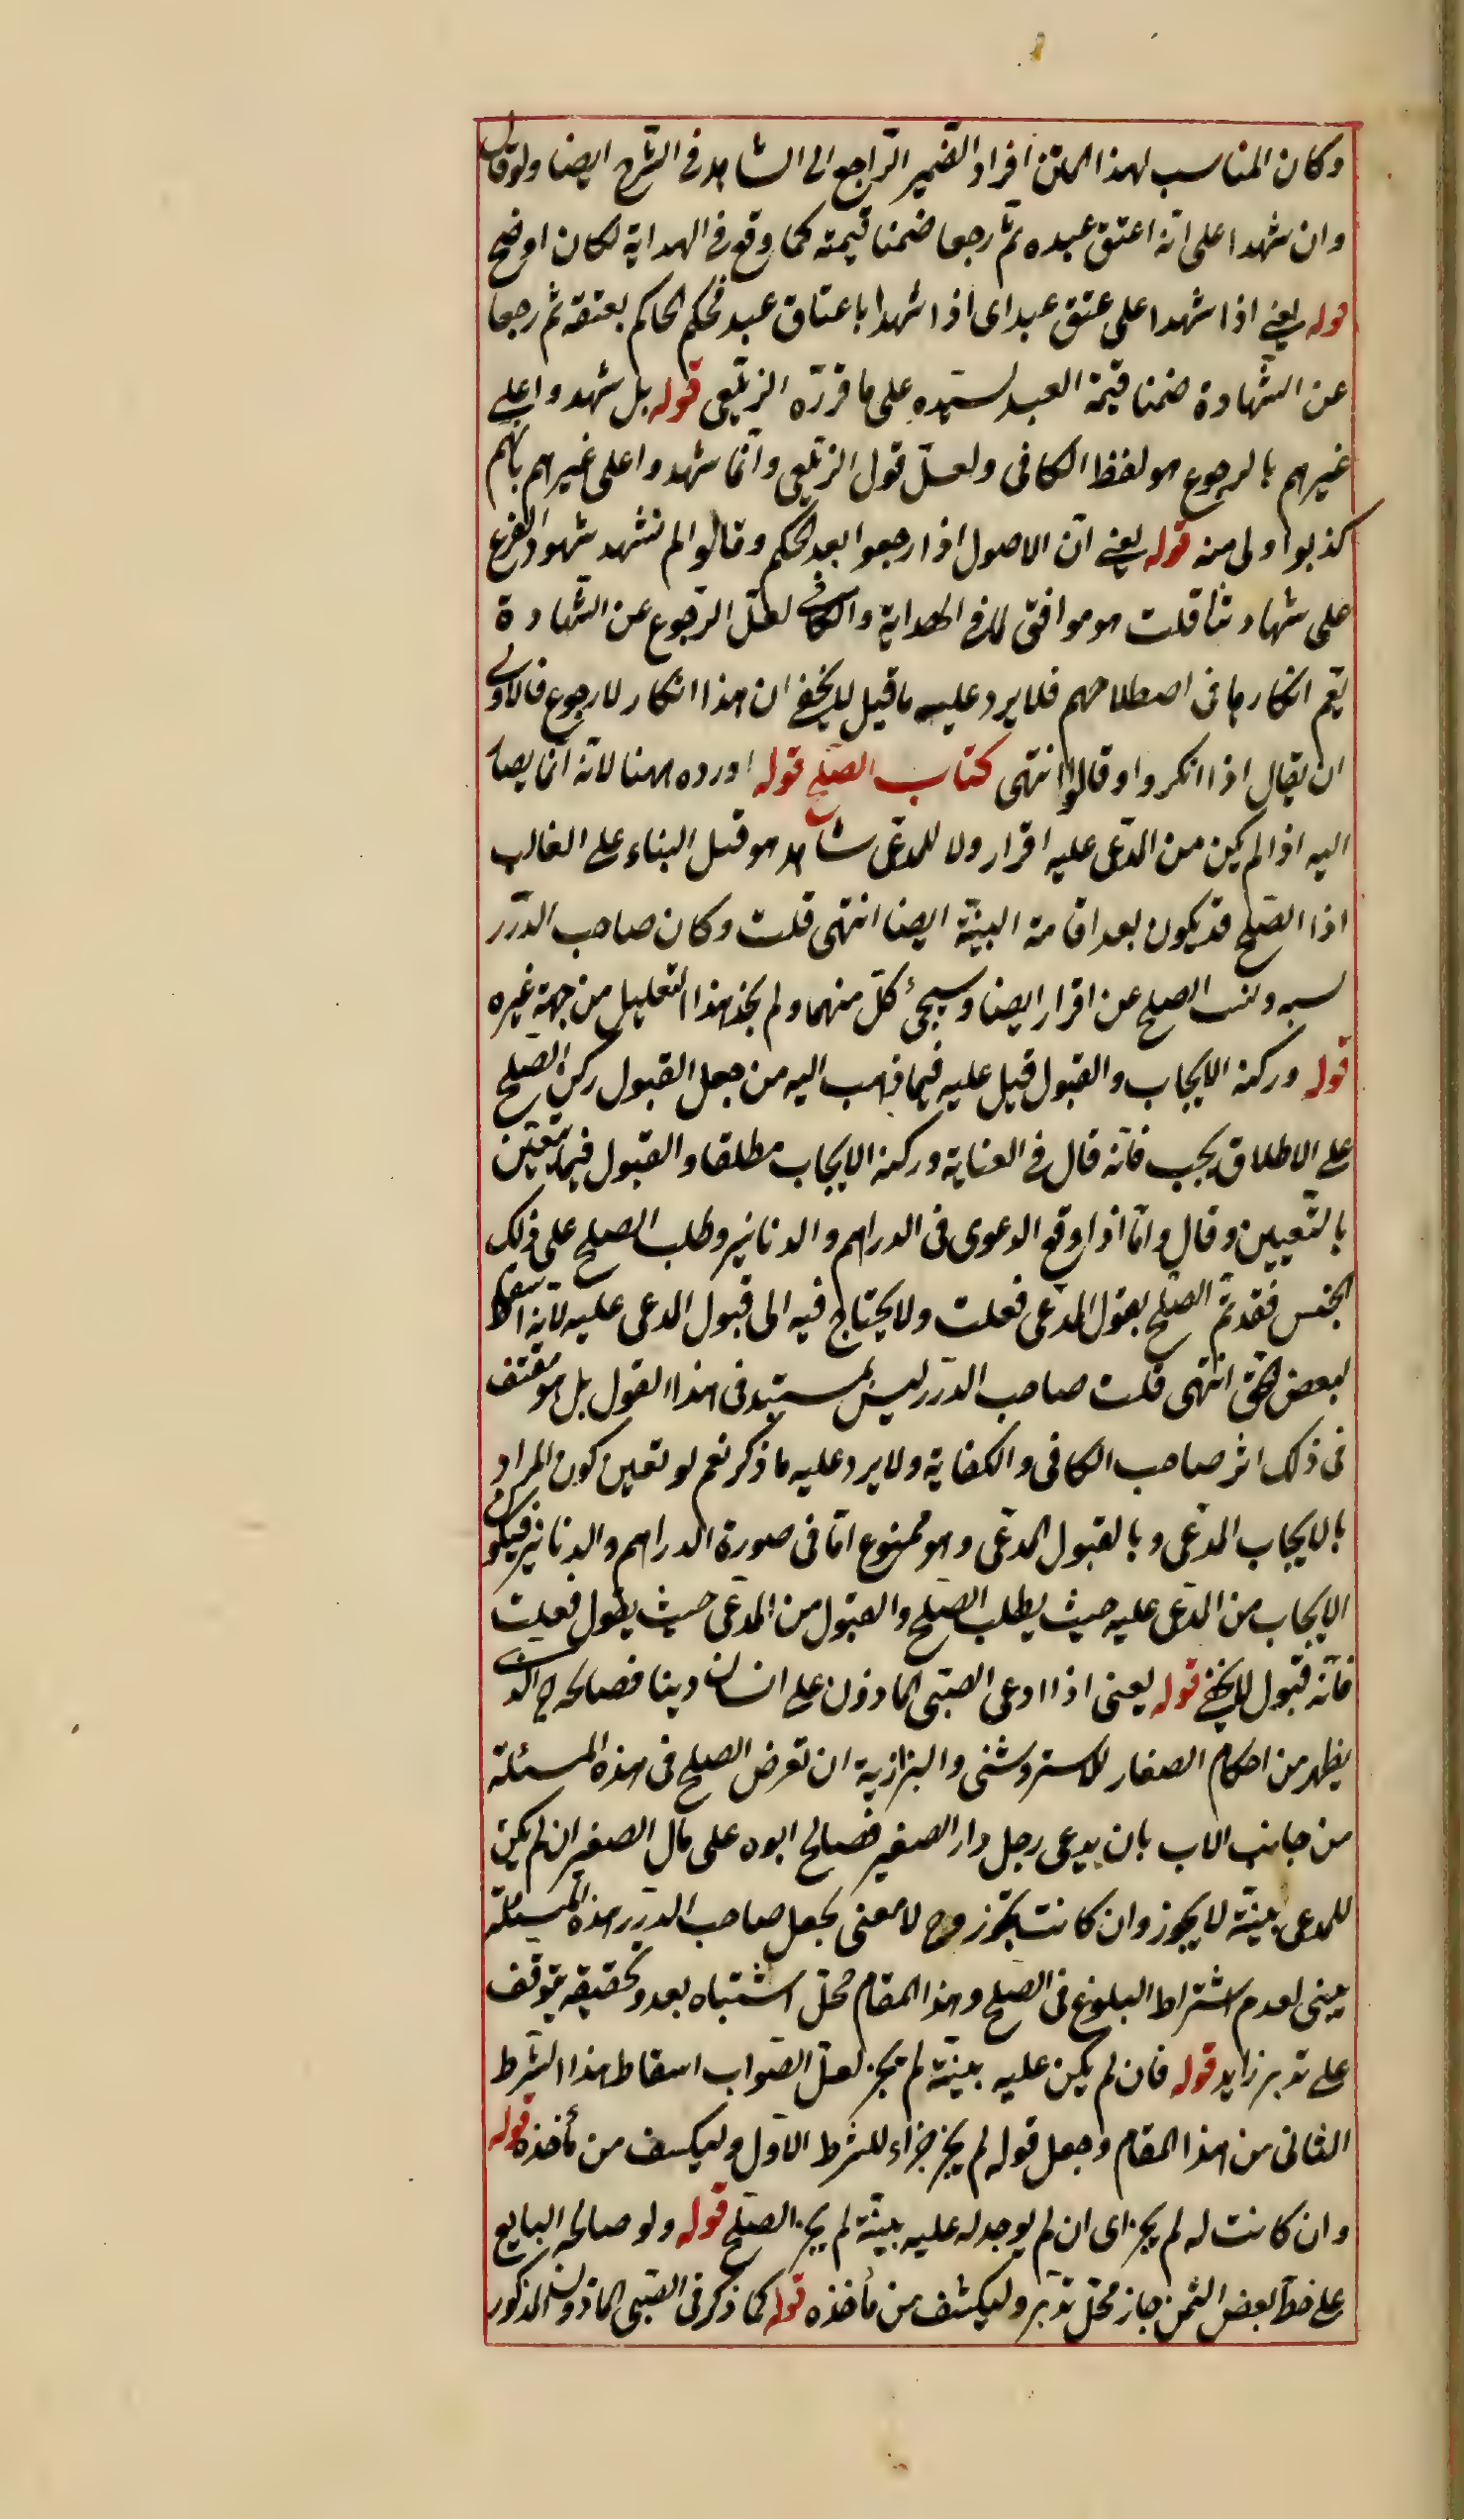 وكان المناسب لهذا المتن افراد الضمير الراجع الى الشاهد فى الشرح ايضا ولو قال
وان شهدا على انه اعتق عبده ثم رجعا ضمنا قيمته كما وقع فى الهداية لكان اوضح
قوله يعنى اذا شهدا على عتق عبد اى اذا شهدا باعتاق عبد فحكم الحاكم بعتقه ثم رجعا
عن الشهادة ضمنا قيمة العبد لسيده على ما قرره الزيلعى قوله بل شهدوا على
غيرهم بالرجوع هو لفظ الكافى ولعل قول الزيلعى وانما شهدوا على غيرهم بانهم
كذبوا اولى منه قوله يعنى ان الاصول اذا رجعوا بعد الحكم وقالوا لم نشهد شهود الفرع
على شهادتنا قلت هو موافق لما فى الهداية والكافى لعل الرجوع عن الشهادة
يعم انكارها فى اصطلاحهم فلا يرد عليه ما قيل لا يخفى ان هذا انكار لا رجوع فالاولى
ان يقال اذا انكروا او قالوا انتهى كتاب الصلح قوله اورده ههنا لانه انما يصار
اليه اذا لم يكن من المدعى عليه اقرار ولا للمدعى شاهد هو قبل البناء على الغالب
اذا الصلح قد يكون بعد اقامة البينة ايضا انتهى قلت وكان صاحب الدرر
الصلح عن اقرار ايضا وسيجئ كل منهما ولم يجد هذا التعليل من جهة غيره
قوله وركنه الايجاب والقبول قيل عليه فيما ذهب اليه من جعل القبول ركن الصلح
على الاطلاق يجب فانه قال فى العناية وركنه الايجاب مطلقا والقبول فيما يتعين
بالتعيين وقال واما اذا وقع الدعوى فى الدراهم والدنانير وطلب الصلح على ذلك
الجنس فقد تم الصلح بقول المدعى فعلت ولا يحتاج فيه الى قبول المدعى عليه لانه اسقاط
لبعض الحق انتهى قلت صاحب الدرر ليس بمستبد فى هذا القول بل هو مقتف
فى ذلك اثر صاحب الكافى والكفاية ولا يرد عليه ما ذكر نعم لو تعين كون المراد
بالايجاب المدعى وبالقبول المدعى وهو ممنوع اما فى صورة الدراهم والدنانير فيكون
الايجاب من المدعى عليه حيث يطلب الصلح والقبول من المدعى حيث يقول فعلت
فانه قبول لا يخفى قوله يعنى اذا ادعى الصبى المأذون على انسان دينا فصالحه ح الذى
يظهر من احكام الصغار للاستروشنى والبزازية ان تعرض الصلح فى هذه المسئلة
من جانب الاب بان يدعى رجل دار الصغير فصالح ابوه على مال الصغير ان لم يكن
للمدعى بينة لا يجوز وان كانت يجوز وح لا معنى لجعل صاحب الدرر هذه المسئلة
مبنى لعدم اشتراط البلوغ فى الصلح وهذا المقام محل اشتباه بعد وتحقيقه يتوقف
على تدبر زايد قوله فان لم يكن عليه بينة لم يجز لعل الصواب اسقاط هذا الشرط
الثانى من هذا المقام وجعل قوله لم يجز جزاء للشرط الاول وليكشف من مأخذه قوله
وان كانت له لم يجز اى ان لم يوجد له عليه بينة لم يجز الصلح قوله ولو صالحه البايع
على حط بعض الثمن جاز محل تدبر وليكشف من مأخذه قوله كما ذكر فى الصبى المأذون المذكور